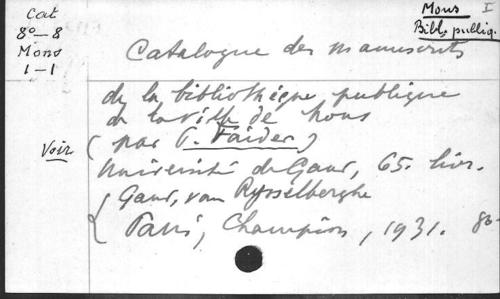 Cat
8°–8
Mons
1–1
Mons I
Bibl. publiq.
Catalogue des manuscrits
de la bibliothèque publique
de la ville de Mons
Voir
(par P. Faider)
Université de Gand, 65. livr.
Gand, van Rysselberghe
Paris, Champion, 1931. 8°–